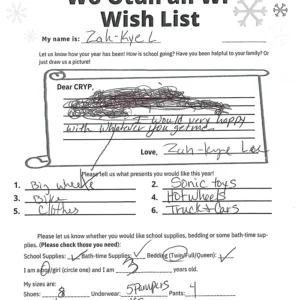 Wish List
My name is: Zah-Kye L
Let us know how your year has been! How is school going? Have you been helpful to your family? Or
just draw us a picture!
Dear CRYP,
I would very happy
with whatever you get me.
Love, Zah-Kye
Please tell us what presents you would like this year!
1. Big wheele 2. Sonic toys
3. Bike 4. Hot wheels
5. Clothes 6. Truck & Cars
Please let us know whether you would like school supplies, bedding or some bath-time sup-
plies. (Please check those you need):
School Supplies: ✓ Bath-time Supplies: ✓ Bedding (Twin/Full/Queen): ✓
I am a girl (circle one) and I am 3 years old.
My sizes are:
Shoes: 8 Underwear: 5 Pampers Pants: 4